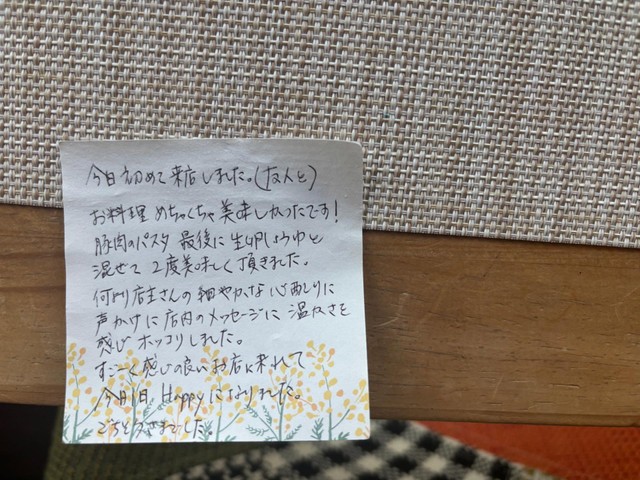 今日初めて来店しました。(友人と)
お料理 めちゃくちゃ美味しかったです!
豚肉のパスタ 最後に生卵しょうゆと
混ぜて 2度美味しく頂きました。
何より店主さんの細やかな心配りに
声かけに店内のメッセージに 温かさを
感じ ホッコリしました。
すごーく感じの良いお店に来れて
今日1日 Happyになりました。
ごちそうさまでした